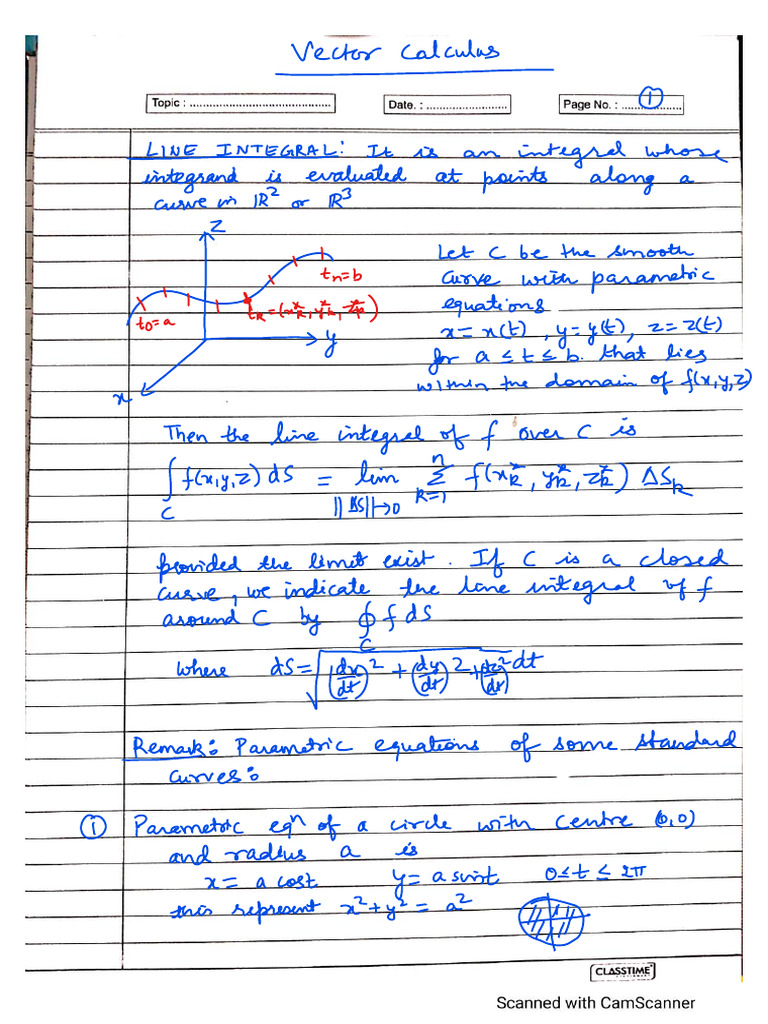 Vector Calculus
Topic : ..........................................
Date. : ........................
Page No. : ...... 1 ..........
LINE INTEGRAL: It is an integral whose
integrand is evaluated at points along a
curve in ℝ² or ℝ³
z
t₀=a
tₖ=(xₖ*, yₖ*, zₖ*)
tₙ=b
y
x
Let C be the smooth
curve with parametric
equations
x=x(t), y=y(t), z=z(t)
for a ≤ t ≤ b. that lies
within the domain of f(x,y,z)
Then the line integral of f over C is
∫_C f(x,y,z) dS = lim_{||ΔS||→0} Σ_{k=1}^{n} f(xₖ*, yₖ*, zₖ*) ΔSₖ
provided the limit exist. If C is a closed
curve, we indicate the line integral of f
around C by ∮_C f dS
where dS = √((dx/dt)² + (dy/dt)² + (dz/dt)²) dt
Remark: Parametric equations of some standard
curves:
① Parametric eqⁿ of a circle with centre (0,0)
and radius a is
x = a cost y = a sint 0 ≤ t ≤ 2π
this represent x²+y² = a²
CLASSTIME
Scanned with CamScanner